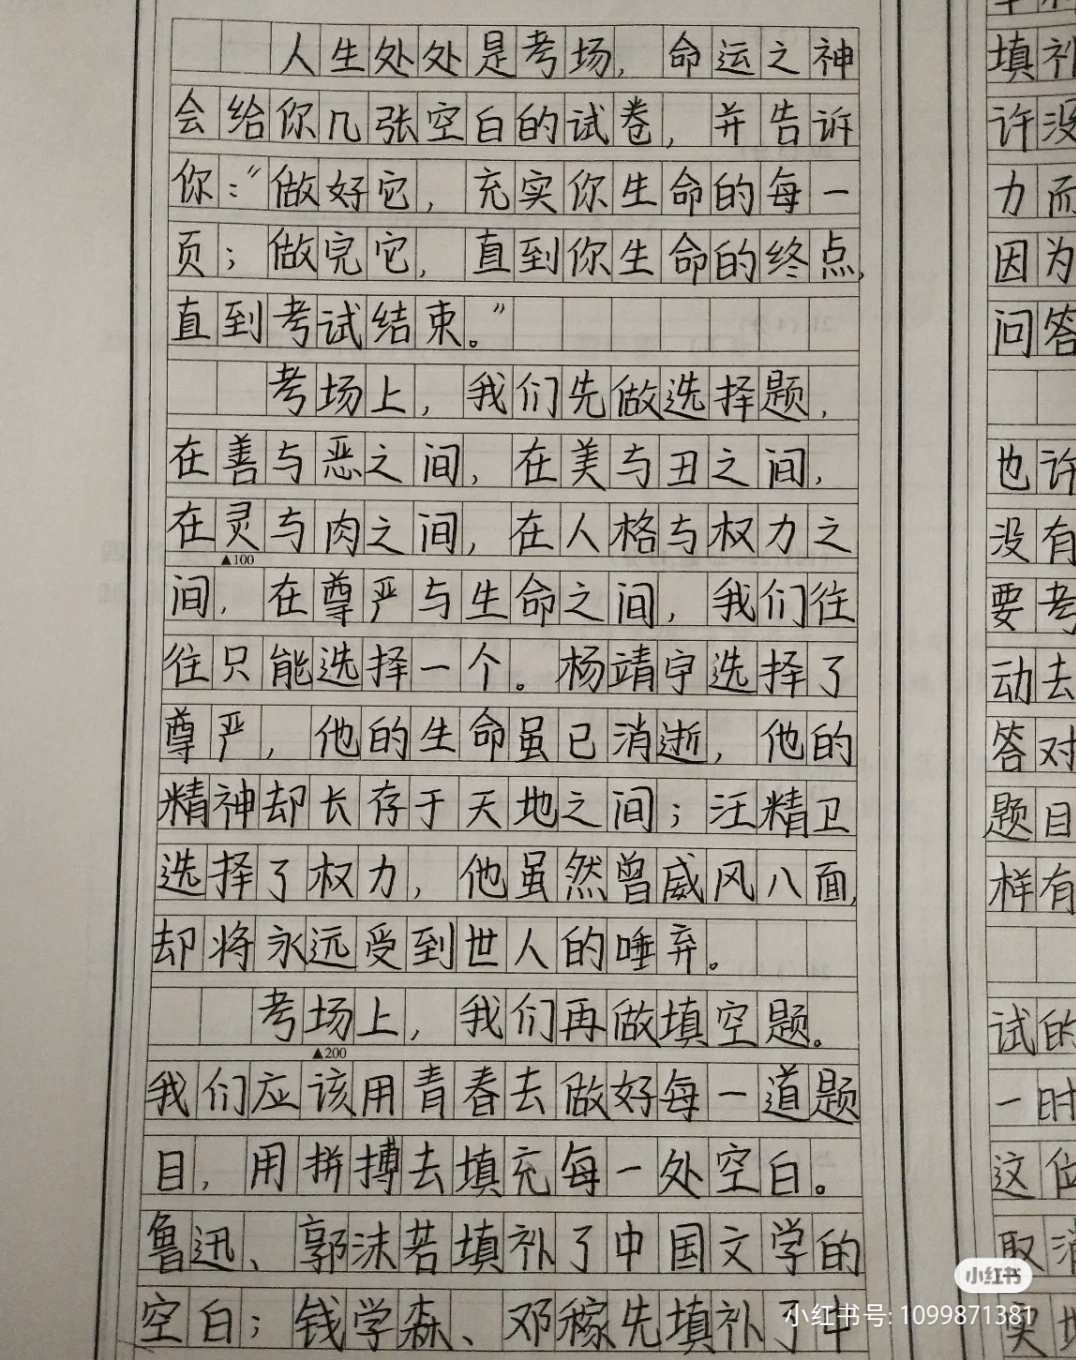 人生处处是考场，命运之神
会给你几张空白的试卷，并告诉
你："做好它，充实你生命的每一
页；做完它，直到你生命的终点，
直到考试结束。"
考场上，我们先做选择题，
在善与恶之间，在美与丑之间，
在灵与肉之间，在人格与权力之
▲100
间，在尊严与生命之间，我们往
往只能选择一个。杨靖宇选择了
尊严，他的生命虽已消逝，他的
精神却长存于天地之间；汪精卫
选择了权力，他虽然曾威风八面，
却将永远受到世人的唾弃。
考场上，我们再做填空题。
▲200
我们应该用青春去做好每一道题
目，用拼搏去填充每一处空白。
鲁迅、郭沫若填补了中国文学的
空白；钱学森、邓稼先填补了中
填补
许没
力而
因为
问答
也许
没有
要考
动去
答对
题目
样有
试的
一时
这位
取消
小红书
小红书号: 1099871381